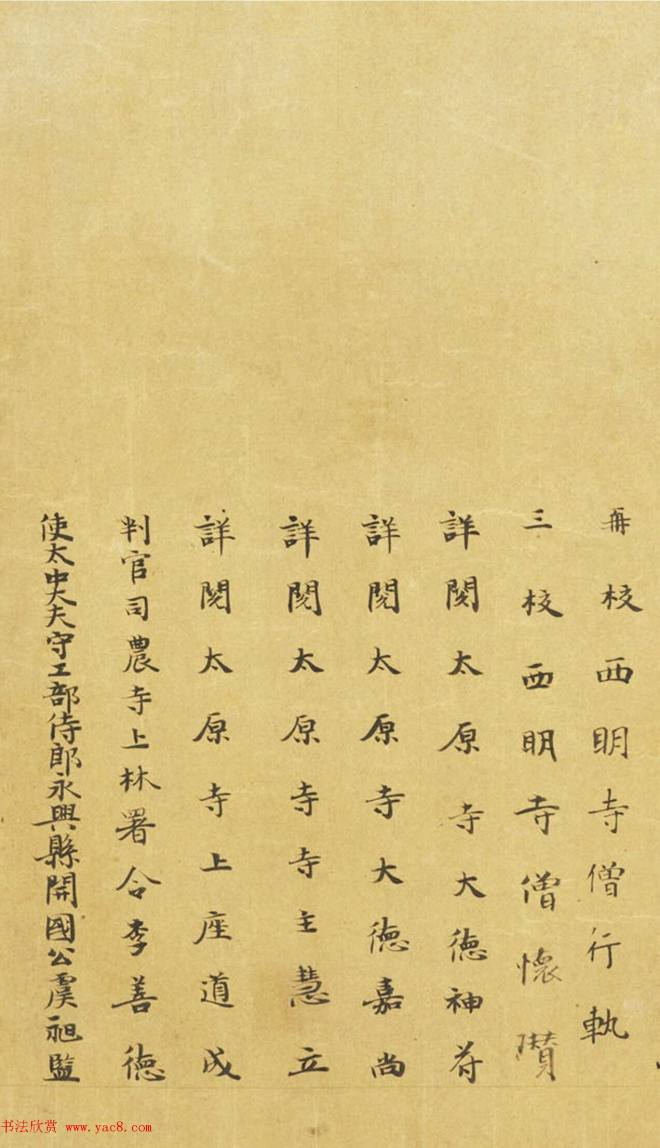 再校西明寺僧行軌
三校西明寺僧懷瓚
詳閱太原寺大德神苻
詳閱太原寺大德嘉尚
詳閱太原寺寺主慧立
詳閱太原寺上座道成
判官司農寺上林署令李善德
使太中大夫守工部侍郎永興縣開國公虞昶監
书法欣赏 www.yac8.com